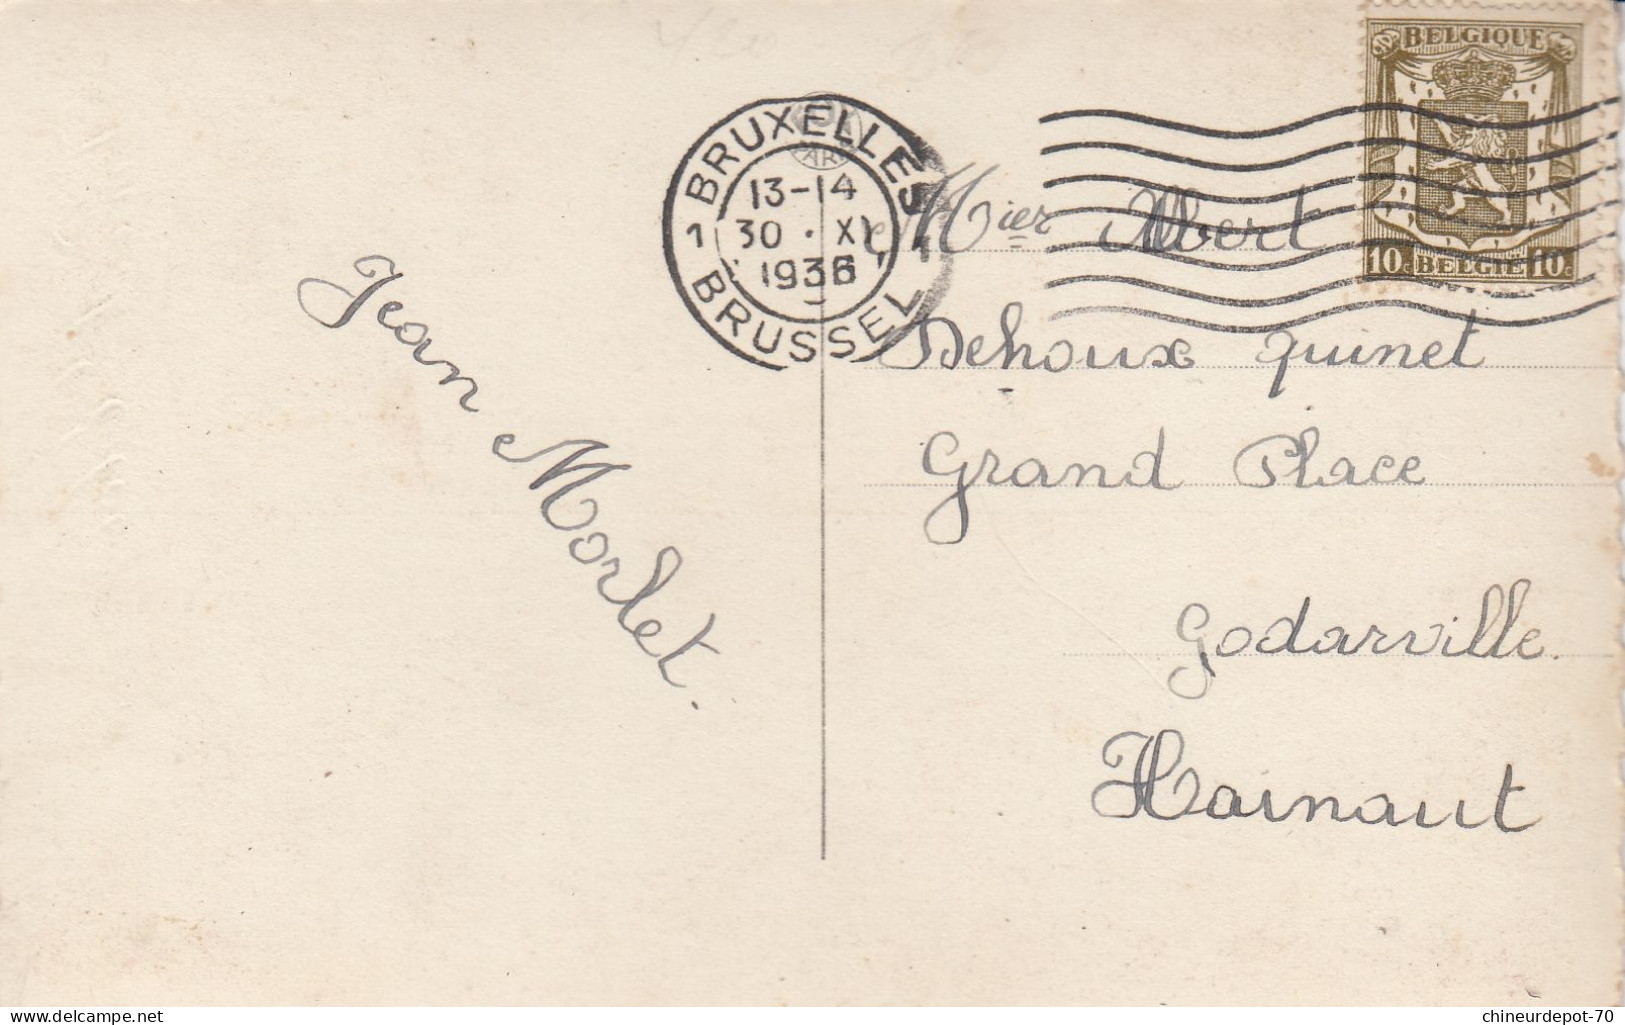 BELGIQUE
10c BELGIË 10c
BRUXELLES
13-14
30 · XI
1936
1 BRUSSEL 1
Jean Morlet.
Mier Albert
Dehoux quinet
Grand Place
Godarville.
Hainaut
delcampe.net
chineurdepot-70